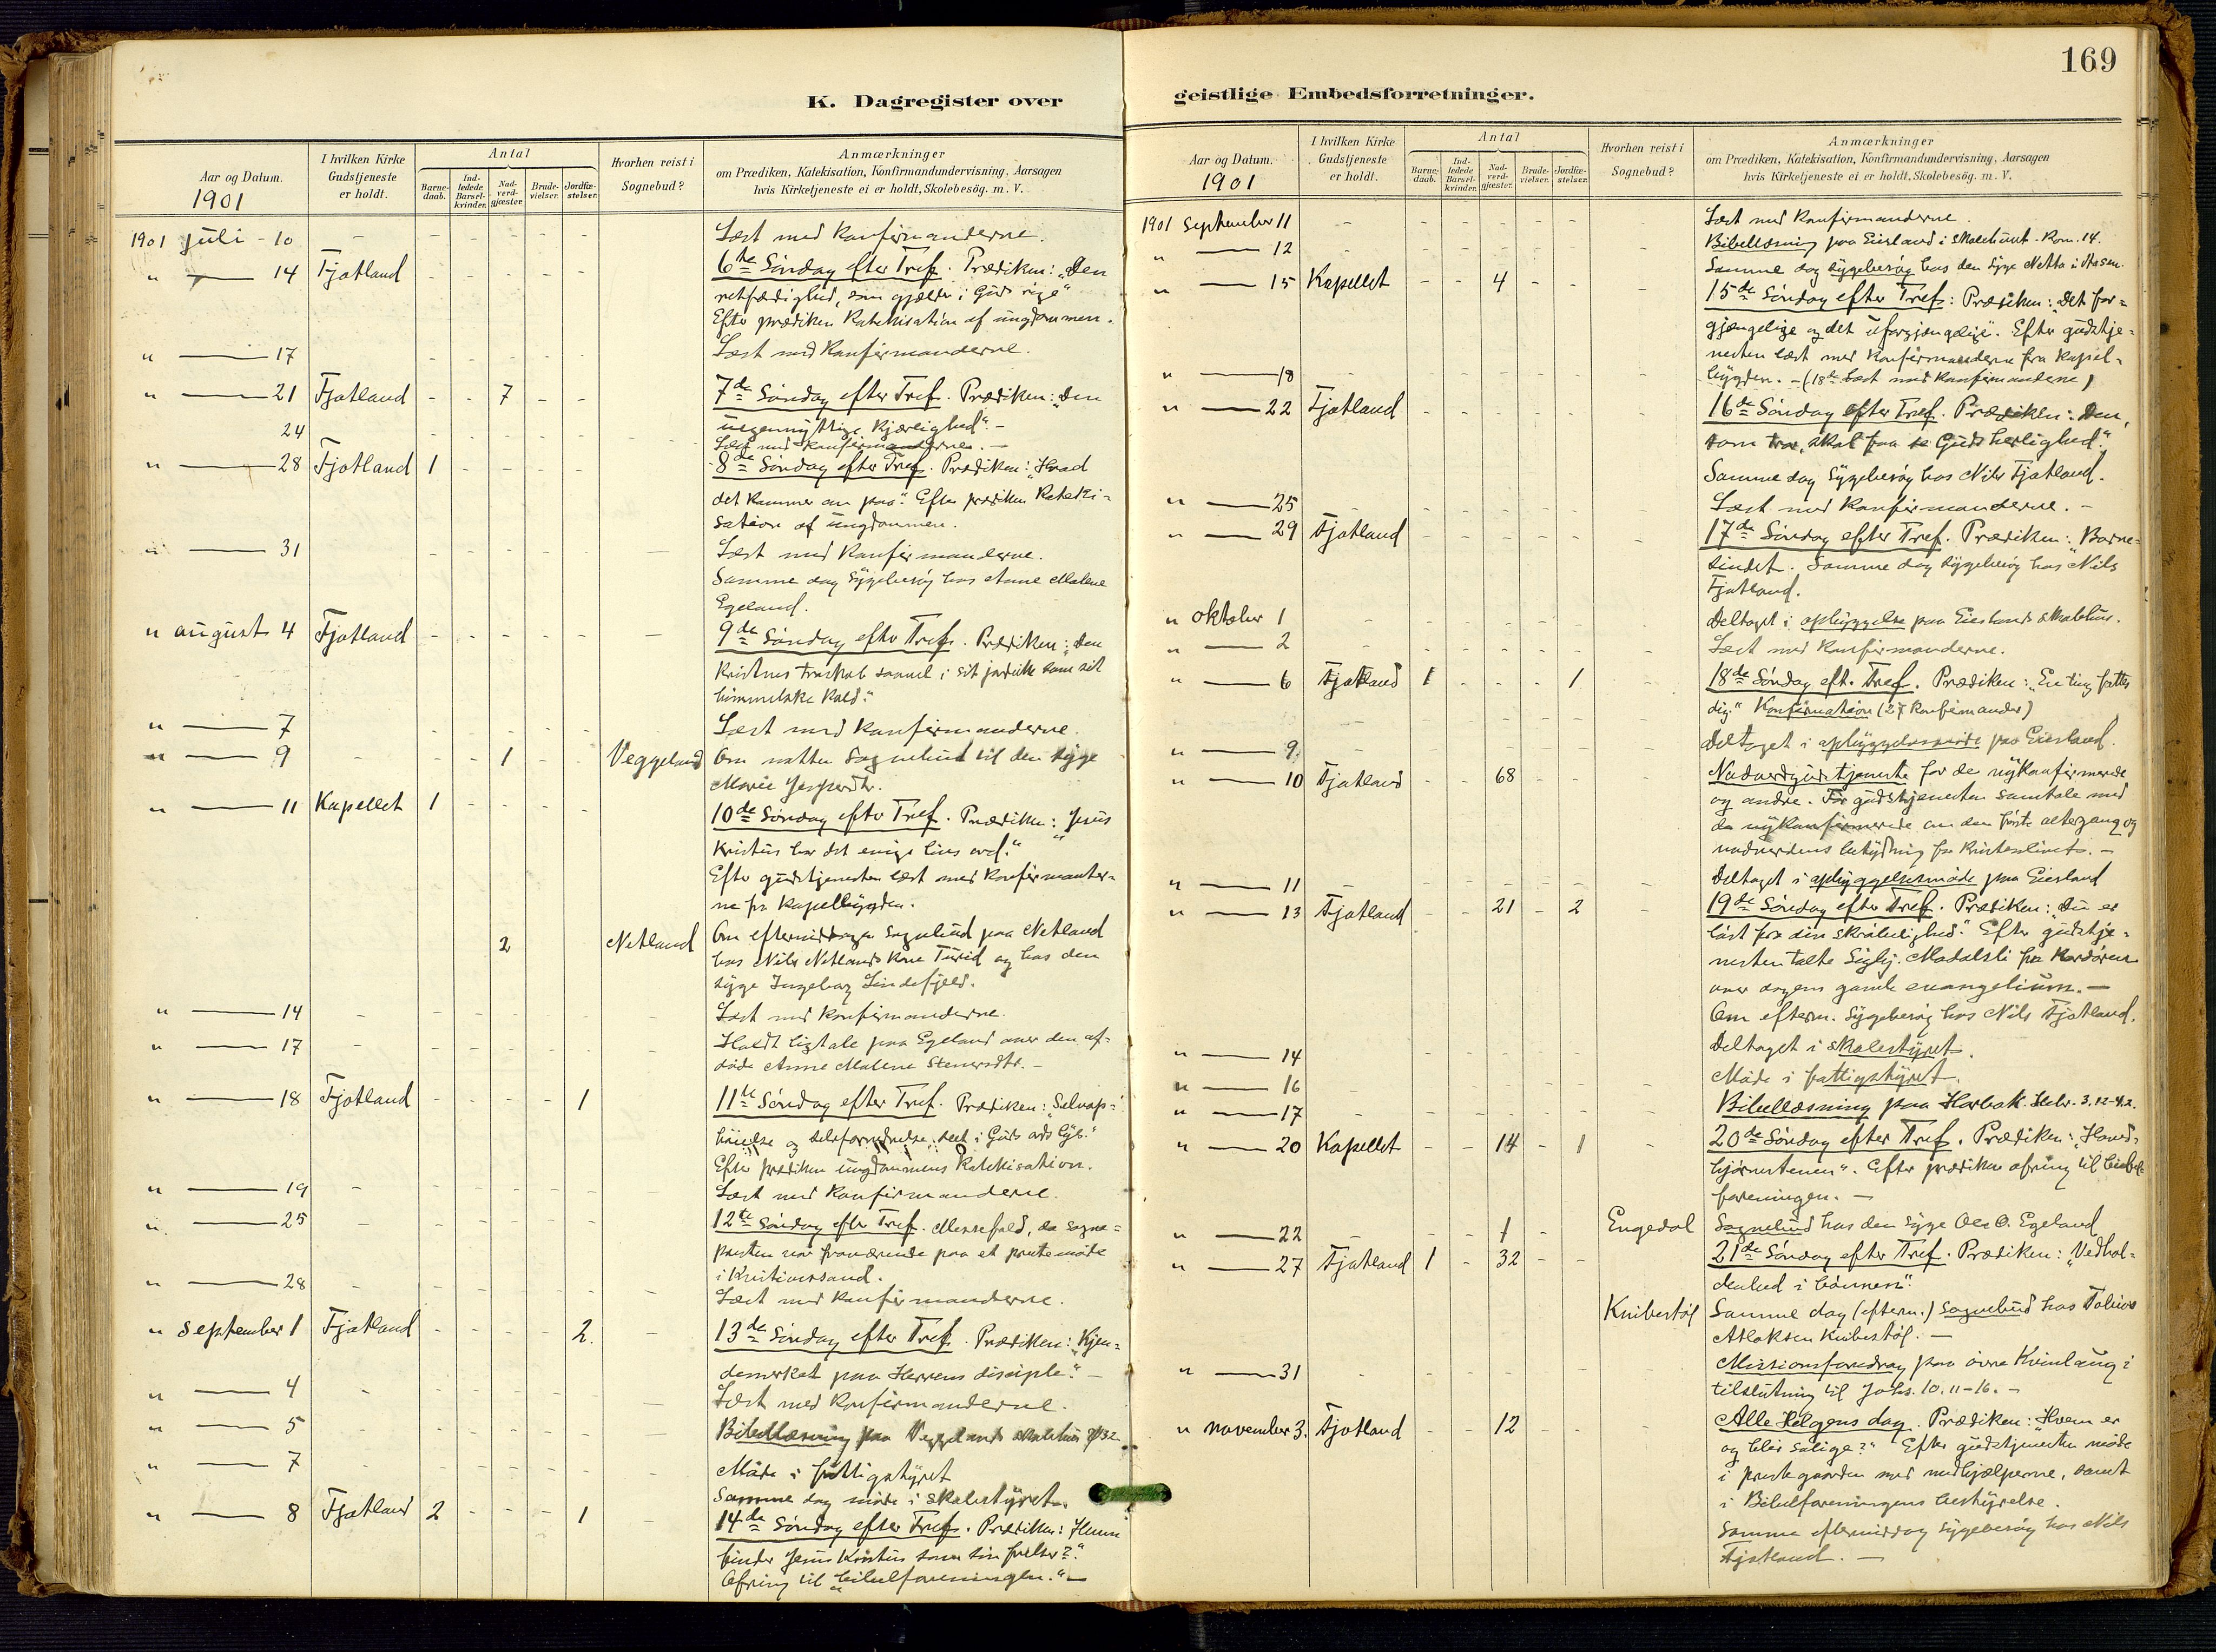 169
K. Dagregister over
geistlige Embedsforretninger.
Aar og Datum.
1901
I hvilken Kirke
Gudstjeneste
er holdt.
Antal
Barne-
daab.
Ind-
ledede
Barsel-
kvinder.
Nad-
verd-
gjæster.
Brude-
vielser.
Jordfæ-
stelser.
Hvorhen reist i
Sognebud?
Anmærkninger
om Prædiken, Katekisation, Konfirmandundervisning, Aarsagen
hvis Kirketjeneste ei er holdt, Skolebesög. m. V.
1901 juli - 10 - - - - - - Læst med Konfirmanderne.
" — 14 Fjotland - - - - - 6te Söndag efter Tref. Prædiken: "Den
retfærdighed, som gjælder i Guds rige"
Efter prædiken Katekisation af ungdommen.
" — 17 - - - - - Læst med Konfirmanderne.
" — 21 Fjotland - - 7 - - 7de Söndag efter Tref. Prædiken: "Den
uegennyttige Kjærlighed". -
24 - - - - - Læst med Konfirmanderne. -
" — 28 Fjotland 1 - - - - 8de Söndag efter Tref. Prædiken: "Hvad
det kommer an paa". Efter prædiken Kateki-
sation af ungdommen.
" — 31 - - - - - Læst med Konfirmanderne.
Samme dag sygebesög hos Anne Malene
Egeland.
" august 4 Fjotland - - - - - - 9de Söndag efter Tref. Prædiken: "Den
Kristnes troskab saavel i sit jordiske som sit
himmelske Kald."
" — 7 - - - - - Læst med Konfirmanderne.
" — 9 - - - 1 - - Veggeland Om natten Sognebud til den syge
Marie Jespersdtr.
" — 11 Kapellet 1 - - - - 10de Söndag efter Tref. Prædiken: "Jesus
Kristus har det evige livs ord."
Efter gudstjenesten læst med Konfirmanter-
ne fra Kapelbygden.
2 Netland Om eftermiddagen Sognebud paa Netland
hos Nils Netlands Kone Turid og hos den
syge Ingeborg Lindefjeld.
" — 14 - - - - - - Læst med Konfirmanderne.
" — 17 - - - - - - - Holdt ligtale paa Egeland over den af-
döde Anne Malene Stenersdtr. -
" — 18 Fjotland - - - - 1 11te Söndag efter Tref. Prædiken: "Selvop-
höielse og selvfornedrelse, seet i Guds ords lys."
Efter prædiken ungdommens Katekisation.
" — 19 - - - - - - - Læst med Konfirmanderne.
" — 25 - - - - - - - 12te Söndag efter Tref. Messefald, da sogne-
presten var fraværende paa et prestemöde
i Kristianssand.
" — 28 - - - - - - - Læst med Konfirmanderne.
" September 1 Fjotland - - - - 2. - 13de Söndag efter Tref. Prædiken: "Kjen-
demerket paa Herrens disciple." -
" — 4 - - - - - - - Læst med Konfirmanderne.
" — 5 - - - - - - Bibellæsning paa Veggelands skolehus
" — 7 - - - - - - - Möde i fattigstyret
Samme dag möde i skolestyret.
" — 8 Fjotland 2 - - - 1 - 14de Söndag efter Tref. Prædiken: "Hvem
finder Jesus Kristus som sin frelser?"
Ofring til "bibelforeningen." -
Aar og Datum.
1901
I hvilken Kirke
Gudstjeneste
er holdt.
Antal
Barne-
daab.
Ind-
ledede
Barsel-
kvinder.
Nad-
verd-
gjæster.
Brude-
vielser.
Jordfæ-
stelser.
Hvorhen reist i
Sognebud?
Anmærkninger
om Prædiken, Katekisation, Konfirmandundervisning, Aarsagen
hvis Kirketjeneste ei er holdt, Skolebesög. m. V.
1901 September 11 - - - - - - Læst med Konfirmanderne.
" — 12 - - - - - - - Bibellæsning paa Eiesland i Skolehuset. Rom. 14.
Samme dag sygebesög hos den syge Netta i
" — 15 Kapellet - - 4 - - - 15de Söndag efter Tref: Prædiken: "Det for-
gjængelige og det uforgjængelige". Efter gudstje-
nesten læst med Konfirmanderne fra Kapel-
" — 18 - - - - - bygden. - (18de Læst med Konfirmanderne)
" — 22 Fjotland - - - - - - 16de Söndag efter Tref. Prædiken: "Den,
som tror, skal faa se Guds herlighed."
Samme dag sygebesög hos Nils Fjotland.
" — 25 - - - - - - Læst med Konfirmanderne. -
" — 29 Fjotland - - - - - - 17de Söndag efter Tref. Prædiken: "Barne-
sindet. Samme dag sygebesög hos Nils
Fjotland.
" Oktober 1 - - - - - - - Deltaget i opbyggelse paa Eieslands skolehus.
" — 2 - - - - - - - Læst med Konfirmanderne.
" — 6 Fjotland 1 - - - 1 - 18de Söndag eft. Tref. Prædiken: "En ting fattes
dig." Konfirmation (27 Konfirmander)
" — 9. - - - - - - - Deltaget i opbyggelsesmöde paa Eiesland.
" — 10 Fjotland - - 68 - - - Nadverdgudstjeneste for de nykonfirmerede
og andre.För gudstjenesten samtale med
de nykonfirmerede om den förste altergang og
nadverdens betydning for Kristenlivet. -
" — 11 - - - - - - - Deltaget i opbyggelsesmöde paa Eiesland
" — 13 Fjotland - - 21 - 2 - 19de Söndag efter Tref. Prædiken: "Du er
löst fra din skröbelighed." Efter gudstje-
nesten talte
over dagens gamle evangelium. -
Om efterm. sygebesög hos Nils Fjotland.
" — 14 - - - - Deltaget i skolestyret.
" — 16 - - - - - - - Möde i fattigstyret.
" — 17 - - - - - - - Bibellæsning paa Hebr. 3,12-4,2.
" — 20 Kapellet - - 14 - 1 - 20de Söndag efter Tref. Prædiken: "Hoved-
hjörnestenen". Efter prædiken ofring til bibel-
foreningen. -
" — 22 - - - 1 - Engedal Sognebud hos den syge Ole O. Egeland
" — 27 Fjotland 1 - 32 - - 21de Söndag efter Tref. Prædiken: "Vedhol-
denhed i bönnen".
Knibestöl Samme dag (efterm.) Sognebud hos Tobias
Atlaksen Knibestöl. -
" — 31 - - - - - - - Missionsforedrag paa övre Kvinlaug i
tilslutning til Johs. 10. 11-16. -
" november 3. Fjotland - - 12 - - - Alle Helgens dag. Prædiken: "Hvem er
og blir salige?" Efter gudstjenesten möde
i prestegaarden med medhjælperne, samt
i Bibelforeningens bestyrelse.
Samme eftermiddag sygebesög hos Nils
Fjotland. -